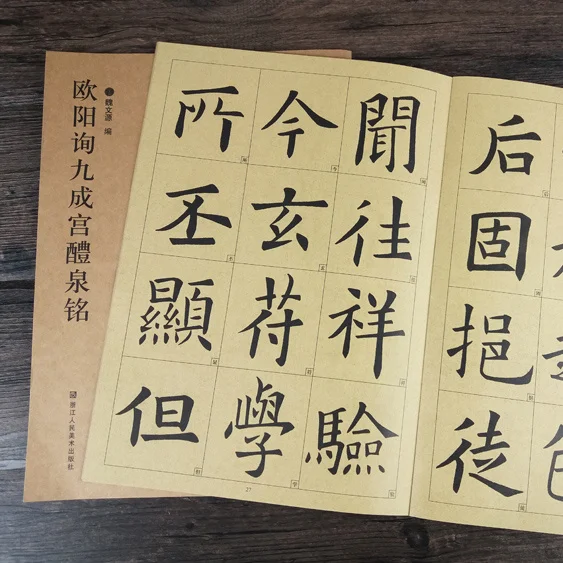 欧阳询九成宫醴泉铭
魏文源 编
浙江人民美术出版社
聞往祥驗
今玄苻學
所丕顯但
后固挹徒
27